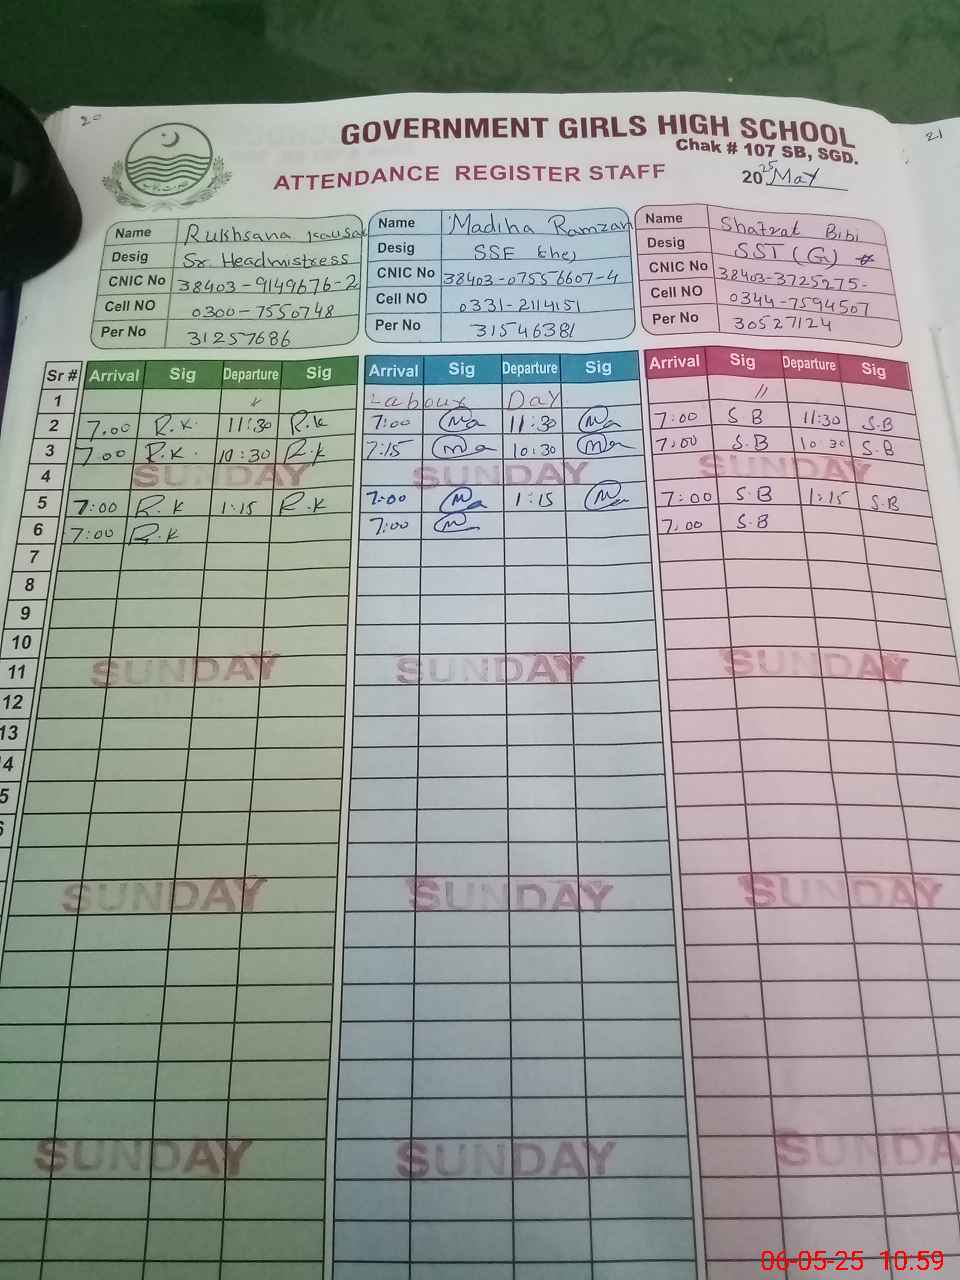 20
21
GOVERNMENT GIRLS HIGH SCHOOL
Chak # 107 SB, SGD.
ATTENDANCE REGISTER STAFF
2025 May
Name Rukhsana Kausar
Desig Sr. Headmistress
CNIC No 38403-9149676-2
Cell NO 0300-7550748
Per No 31257686
Name Madiha Ramzan
Desig SSE
CNIC No 38403-07556607-4
Cell NO 0331-2114151
Per No 31546381
Name Bibi
Desig SST (G)
CNIC No 38403-3725275-
Cell NO 0344-7594507
Per No 30527124
Sr # Arrival Sig Departure Sig Arrival Sig Departure Sig Arrival Sig Departure Sig
1 〃 Labour Day 〃
2 7.00 R.K. 11:30 R.K 7:00 11:30 7:00 S B 11:30 S.B
3 7.00 R.K. 10:30 R.K 7:15 10:30 7:00 S.B 10 30 S.B
4 SUNDAY SUNDAY SUNDAY
5 7:00 R.K 1:15 R.K 7:00 1:15 7:00 S.B 1:15 S.B
6 7:00 R.K 7:00 7.00 S.B
7
8
9
10
11 SUNDAY SUNDAY SUNDAY
12
13
4
5
SUNDAY SUNDAY SUNDAY
SUNDAY SUNDAY SUNDA
06-05-25 10.59